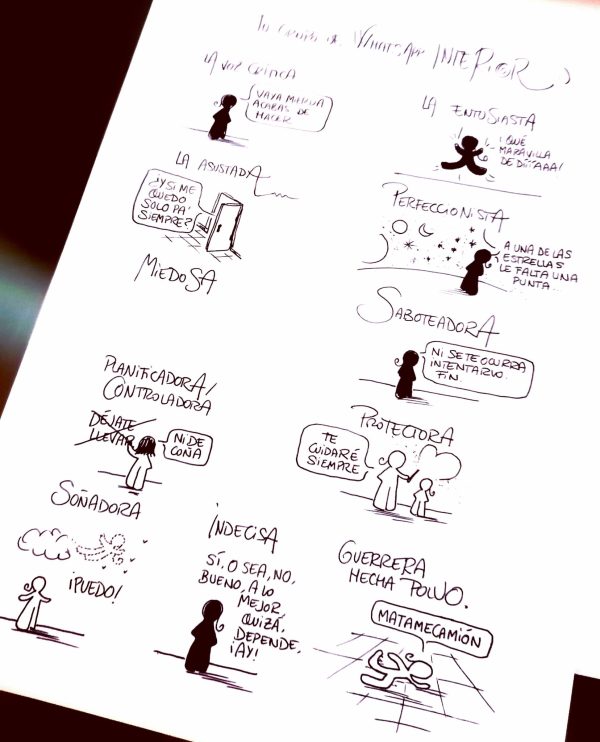 TU GRUPO DE WHATSAPP INTERIOR
LA VOZ CRÍTICA
VAYA MIERDA
ACABAS DE
HACER
LA ENTUSIASTA
¡QUÉ
MARAVILLA
DE DÍÍAAA!
LA ASUSTADA
¿Y SI ME
QUEDO
SOLO PA'
SIEMPRE?
MIEDOSA
PERFECCIONISTA
A UNA DE LAS
ESTRELLAS
LE FALTA UNA
PUNTA
SABOTEADORA
NI SE TE OCURRA
INTENTARLO.
FIN.
PLANIFICADORA/
CONTROLADORA
DÉJATE
LLEVAR
NI DE
COÑA
PROTECTORA
TE
CUIDARÉ
SIEMPRE
SOÑADORA
¡PUEDO!
INDECISA
SÍ, O SEA, NO,
BUENO, A LO
MEJOR
QUIZÁ,
DEPENDE,
¡AY!
GUERRERA
HECHA POLVO.
MATAMECAMIÓN